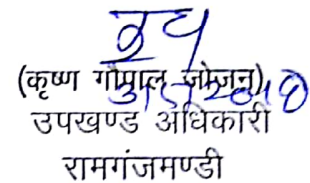 (कृष्ण गोपाल जोजन)
उपखण्ड अधिकारी
रामगंजमण्डी